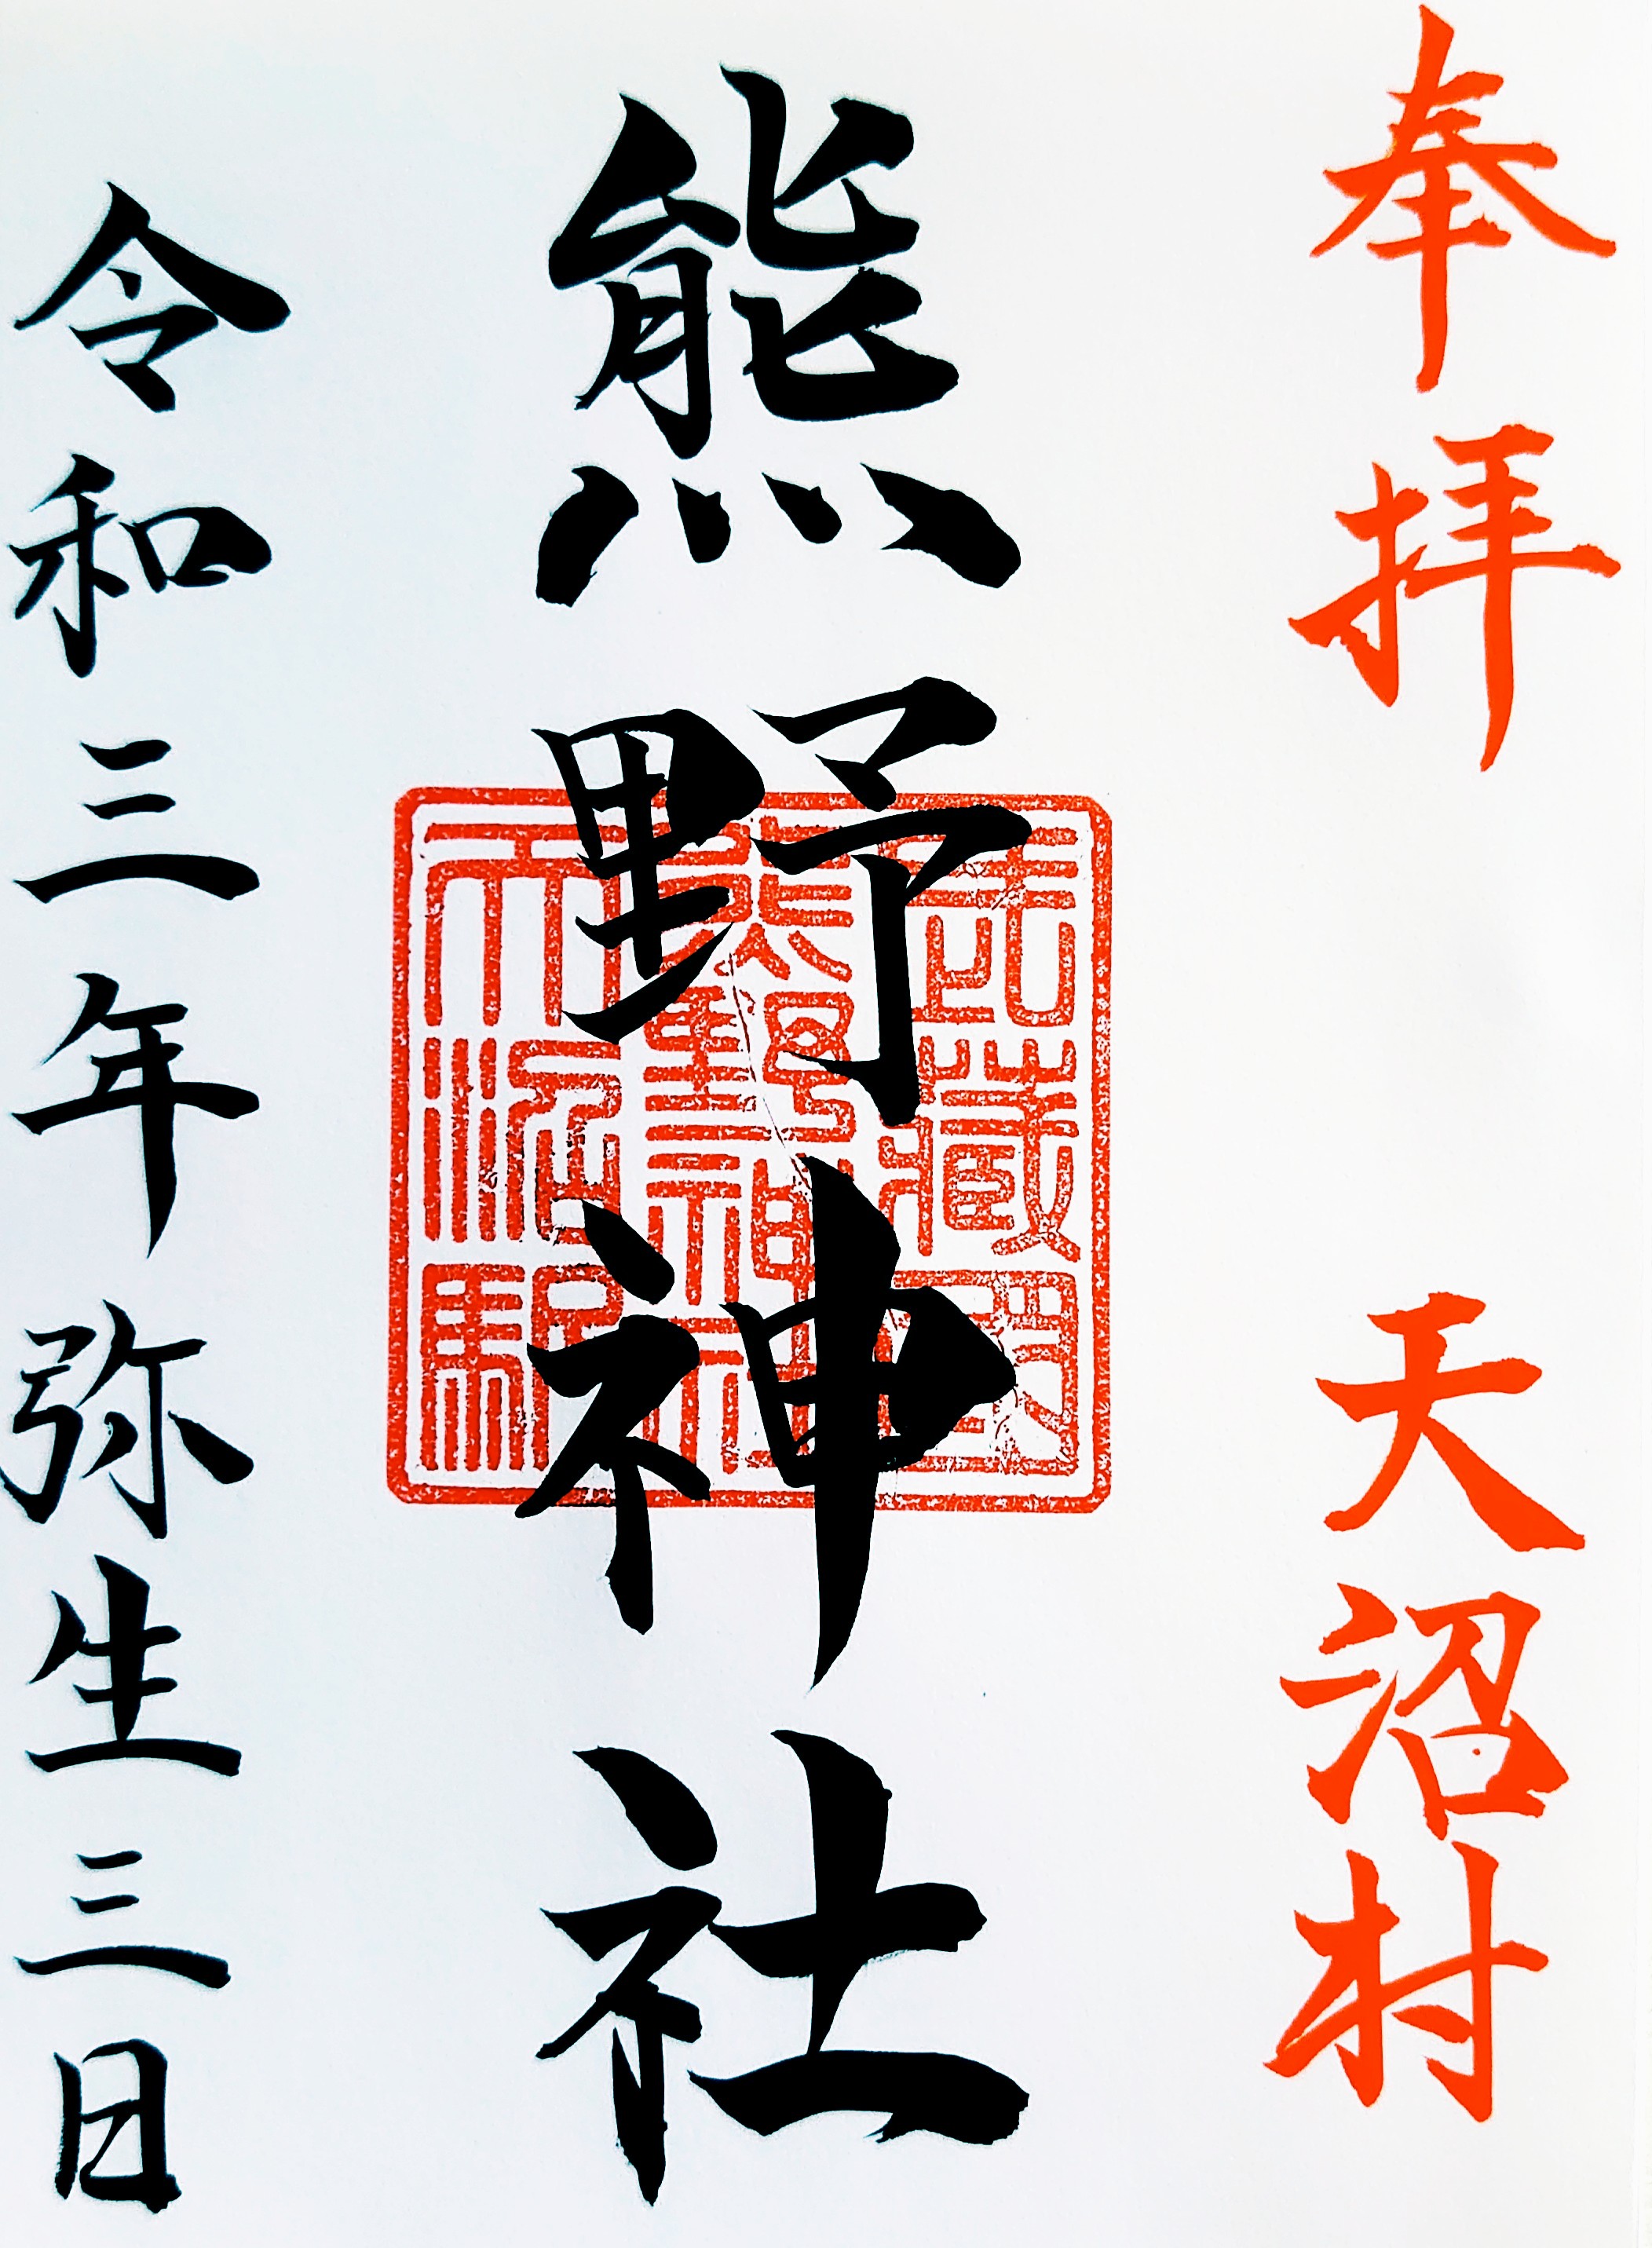 奉拝 天沼村
熊野神社
武藏國
熊野神社
天沼駅
令和三年弥生三日